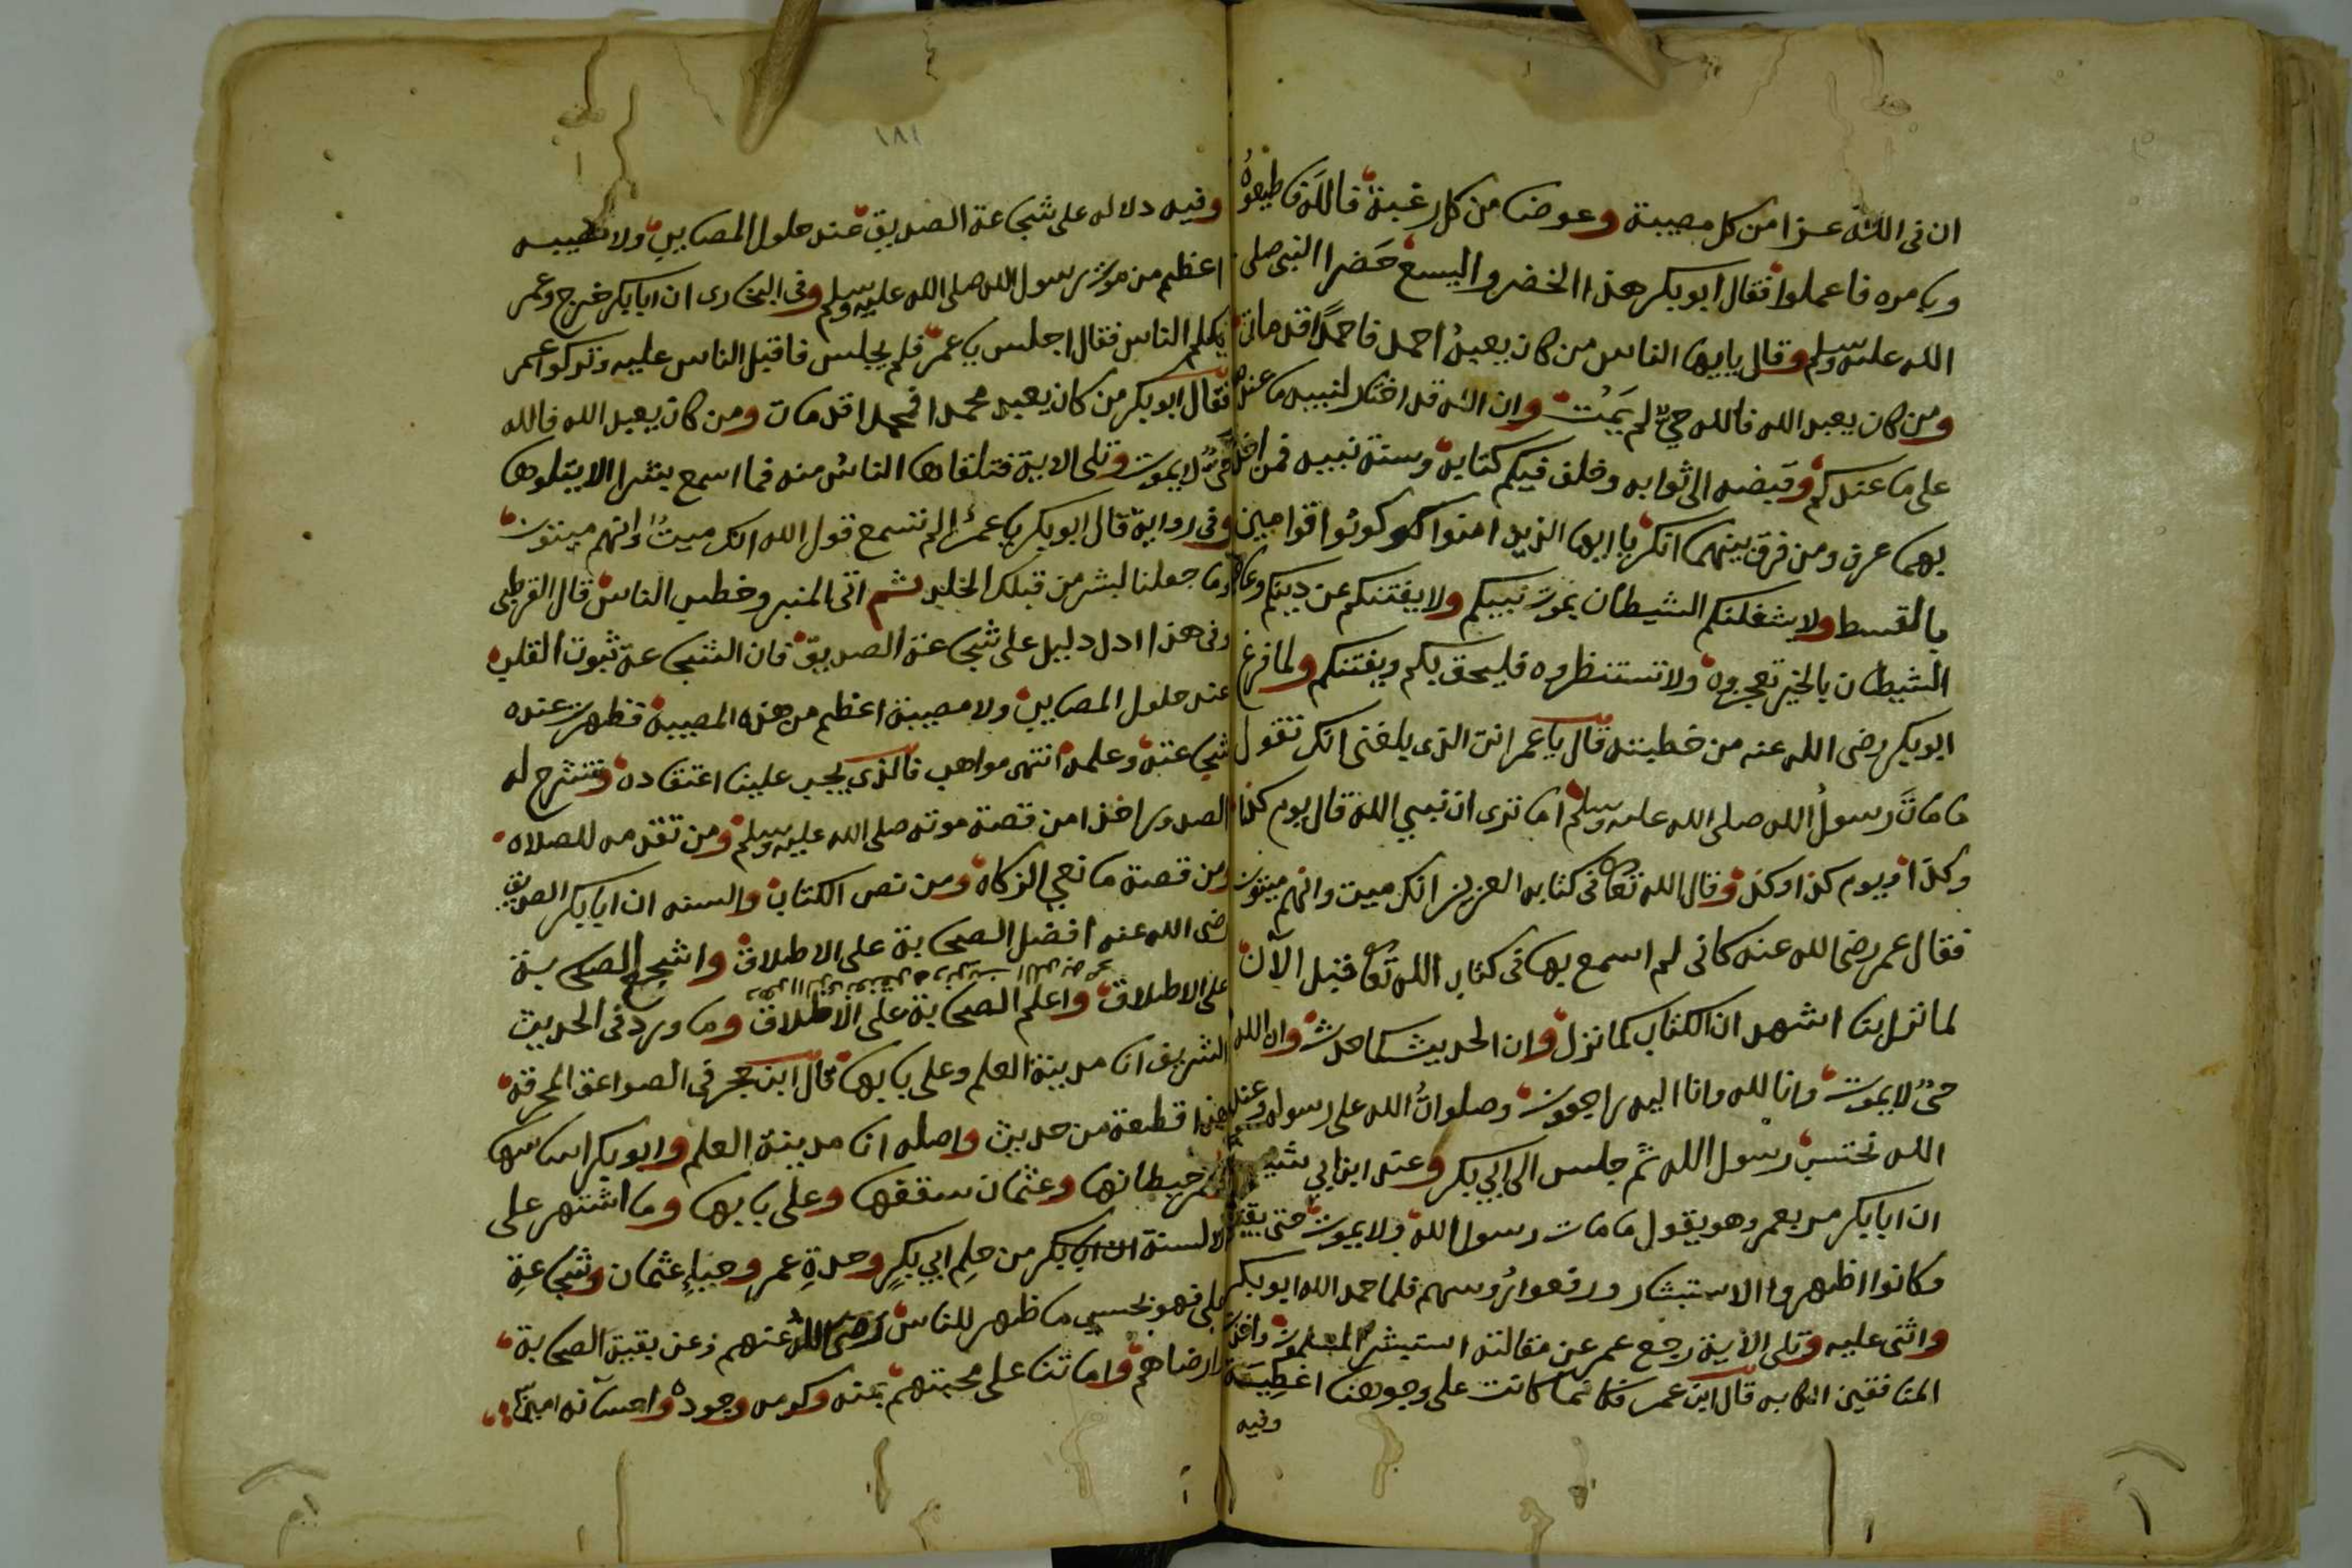 ان فى الله عزا من كل مصيبة وعوضا من كل رغبة فالله فاطيعوه
وبامره فاعملوا فقال ابو بكر هذا الخضر واليسع حضرا النبي صلى
الله عليه وسلم وقال يا ايها الناس من كان يعبد احمد فاحمدا قد مات
ومن كان يعبد الله فالله حي لم يمت وان الله قد اختار لنبيه ما عنده
على ما عندكم وقبضه الى ثوابه وخلف فيكم كتابه وسنة نبيه فمن اخذ
بهما عرف ومن فرق بينهما انكر يا ايها الذين امنوا كونوا قوامين
بالقسط ولا يشغلنكم الشيطان بموت نبيكم ولا يفتنكم عن دينكم
الشيطان بالخير تعجزوه ولا تستنظروه فليحق بكم ويفتنكم ولما فرغ
ابو بكر رضى الله عنه من خطبته قال يا عمر انت الذى بلغنى انك تقول
ما مات رسول الله صلى الله عليه وسلم اما ترى ان نبي الله قال يوم كذا
وكذا ويوم كذا وكذا وقال الله تعا فى كتابه العزيز انك ميت وانهم ميتون
فقال عمر رضى الله عنه كانى لم اسمع بها فى كتاب الله تعا قبل الآن
لما نزل بنا اشهد ان الكتاب كما نزل وان الحديث كما حدث وان الله
حى لا يموت وانا لله وانا اليه راجعون وصلوات الله على رسوله وعند
الله نحتسب رسول الله ثم جلس الى ابي بكر وعند ابن ابي شيبة
ان ابا بكر مر بعمر وهو يقول ما مات رسول الله ولا يموت حتى يقتل
وكانوا اظهروا الاستبشار ورفعوا رؤسهم فلما حمد الله ابو بكر
واثنى عليه وتلى الآية رجع عمر عن مقالته استبشر المسلمون واخذت
المنافقين الكابه قال ابن عمر فكانما كانت على وجوهنا اغطية
وفيه
١٨١
وفيه دلاله على شجاعة الصديق عند حلول المصايب ولا مصيبه
اعظم من موت رسول الله صلى الله عليه وسلم وفى البخارى ان ابا بكر خرج وعمر
يكلم الناس فقال اجلس يا عمر فلم يجلس فاقبل الناس عليه وتركوا عمر
فقال ابو بكر من كان يعبد محمدا فمحمدا قد مات ومن كان يعبد الله فالله
حي لا يموت وتلى الاية فتلقاها الناس منه فما اسمع بشرا الا يتلوها
وفى رواية قال ابو بكر يا عمر الم تسمع قول الله انك ميت وانهم ميتون
وما جعلنا لبشر من قبلك الخلد ثم اتى المنبر وخطب الناس قال القرطبى
وفى هذا ادل دليل على شجاعة الصديق فان الشجاعة ثبوت القلب
عند حلول المصايب ولا مصيبة اعظم من هذه المصيبة فظهرت عنده
شجاعته وعلمه انتهى مواهب فالذى يجب علينا اعتقاده وتنشرح له
الصدور اخذا من قصة موته صلى الله عليه وسلم ومن تقدمه للصلاه
ومن قصة مانعي الزكاه ومن نص الكتاب والسنه ان ابا بكر الصديق
رضى الله عنه افضل الصحابة على الاطلاق واشجع الصحابة
على الاطلاق واعلم الصحابة على الاطلاق وما ورد فى الحديث
الشريف انا مدينة العلم وعلى بابها قال ابن حجر فى الصواعق المحرقه
هذا قطعة من حديث واصله انا مدينة العلم وابو بكر اساسها
وعمر حيطانها وعثمان سقفها وعلى بابها وما اشتهر على
الالسنة ان ابا بكر من حلم ابي بكر وحدة عمر وحياء عثمان وشجاعة
على فهو بحسب ما ظهر للناس رضى الله عنهم وعن بقية الصحابة
وارضاهم واماتنا على محبتهم بمنه وكرمه وجوده واحسانه امين